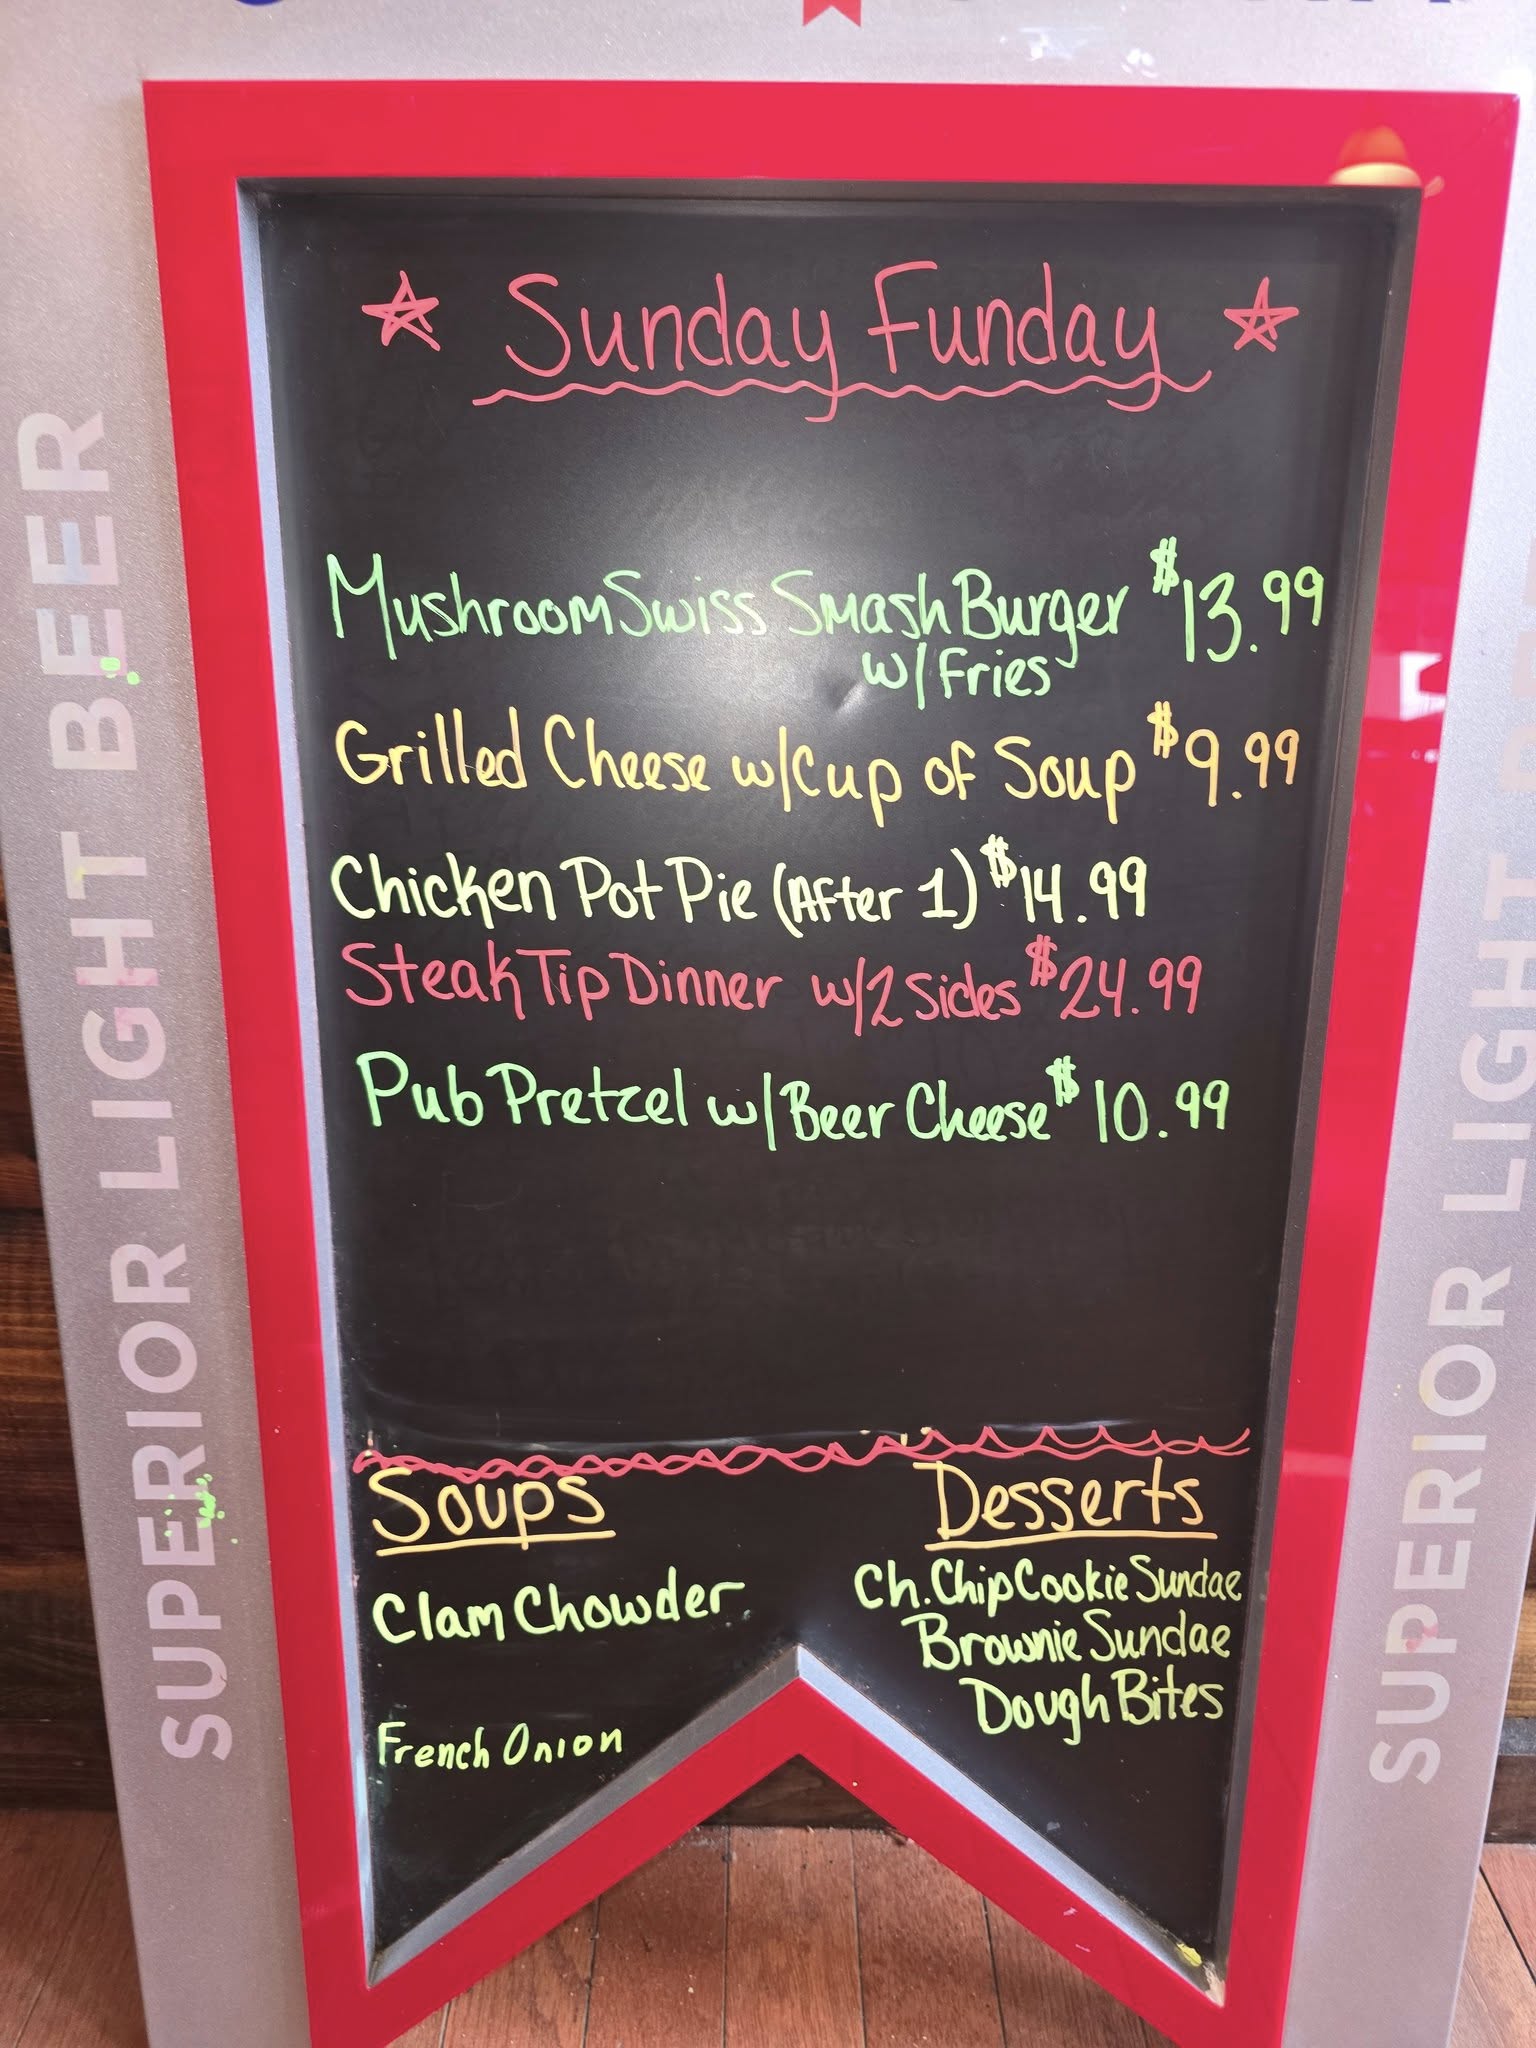 ☆ Sunday Funday ☆
Mushroom Swiss Smash Burger $13.99
w/Fries
Grilled Cheese w/Cup of Soup $9.99
Chicken Pot Pie (After 1) $14.99
Steak Tip Dinner w/2 Sides $24.99
Pub Pretzel w/Beer Cheese $10.99
Soups
Clam Chowder
French Onion
Desserts
Ch. Chip Cookie Sundae
Brownie Sundae
Dough Bites
SUPERIOR LIGHT BEER
SUPERIOR LIGHT